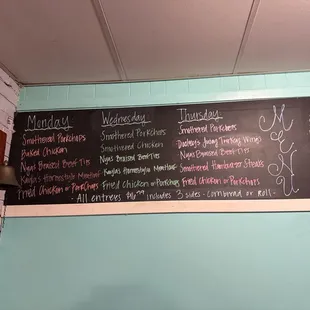 Monday
Smothered Porkchops
Baked Chicken
Nya's Braised Beef-Tips
Kayla's Homestyle Meatloaf
Fried Chicken or PorkChops
Wednesday
Smothered Porkchops
Smothered Chicken
Nya's Braised Beef-Tips
Kayla's Homestyle Meatloaf
Fried Chicken or Porkchops
Thursday
Smothered Porkchops
Turkey Wings
Nya's Braised Beef-Tips
Smothered Hamburger Steaks
Fried Chicken or PorkChops
- All entrees $16.79 includes 3 sides - Cornbread or roll -
MENU